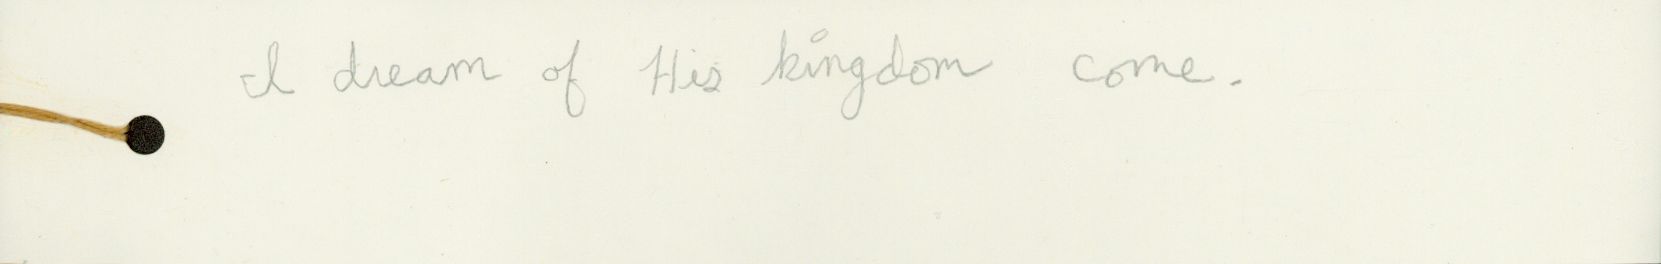 I dream of His kingdom come.